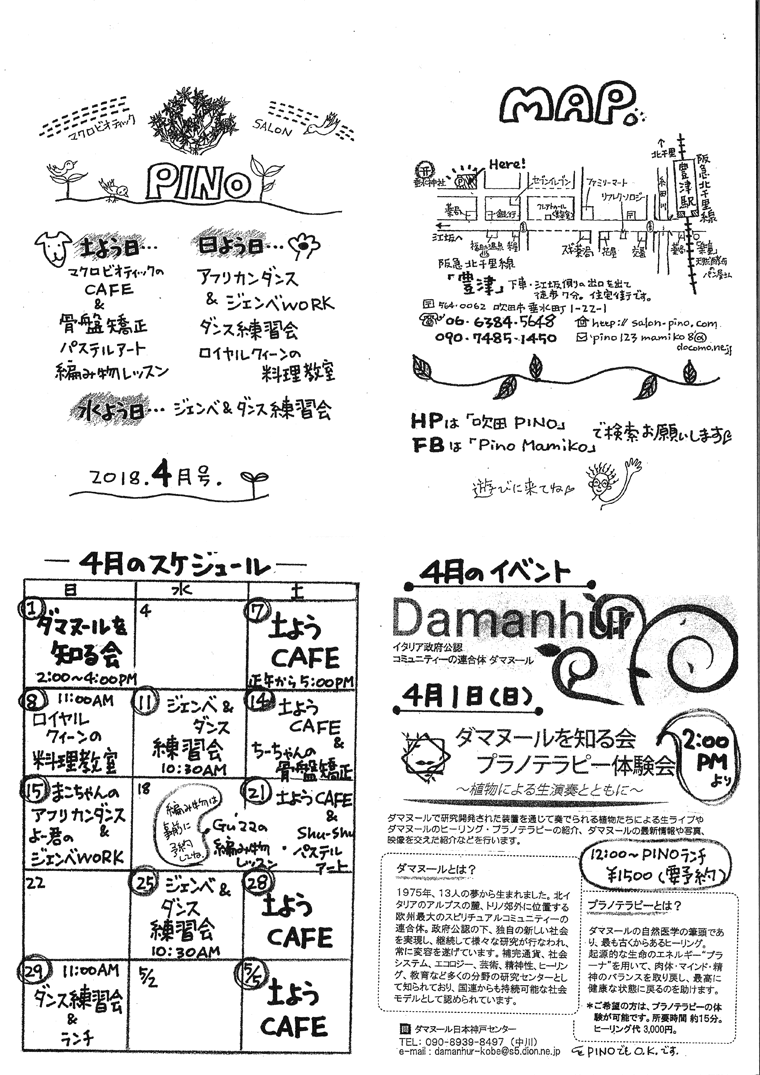 マクロビオティック SALON
PINO
土よう日…
マクロビオティックの
CAFE
&
骨盤矯正
パステルアート
編み物レッスン
日よう日…
アフリカンダンス
& ジェンベWORK
ダンス練習会
ロイヤルクィーンの
料理教室
水よう日… ジェンベ&ダンス練習会
2018.4月号.
MAP.
Here!
垂水神社
PINO
セブンイレブン
ファミリーマート
リフレクソロジー
北千里
糸田川
豊津駅
阪急北千里線
薬局
銀行
スギ薬局
花屋
交番
天然酵母
パン屋さん
江坂へ
阪急北千里線
「豊津」下車・江坂側の出口を出て
徒歩7分。住宅街です。
〒564-0062 吹田市垂水町1-22-1
☎06-6384-5648
http://salon-pino.com
090-7485-1450
pino123mamiko8@
docomo.ne.jp
HPは「吹田 PINO」
FBは「Pino Mamiko」
で検索お願いします♪
遊びに来てね♪
― 4月のスケジュール ―
日 水 土
1 ダマヌールを
知る会
2:00〜4:00PM
4
7 土よう
CAFE
正午から5:00PM
8 11:00AM
ロイヤル
クィーンの
料理教室
11 ジェンベ&
ダンス
練習会
10:30AM
14 土よう
CAFE
&
ちーちゃんの
骨盤矯正
15 まこちゃんの
アフリカダンス
&
よー君の
ジェンベWORK
18
編み物は
事前に
予約
してね。
Guzzの
編み物
レッスン
21 土ようCAFE
&
Shu-shu
・パステル
アート
22
25 ジェンベ&
ダンス
練習会
10:30AM
28 土よう
CAFE
29 11:00AM
ダンス練習会
&
ランチ
5/2
5/5 土よう
CAFE
4月のイベント
Damanhur
イタリア政府公認
コミュニティーの連合体 ダマヌール
4月1日(日)
ダマヌールを知る会
プラノテラピー体験会
〜植物による生演奏とともに〜
2:00
PM
より
ダマヌールで研究開発された装置を通じて奏でられる植物たちによる生ライブや
ダマヌールのヒーリング・プラノテラピーの紹介、ダマヌールの最新情報や写真、
映像を交えた紹介などを行います。
12:00〜PINOランチ
¥1500(要予約)
ダマヌールとは?
1975年、13人の夢から生まれました。北イ
タリアのアルプスの麓、トリノ郊外に位置する
欧州最大のスピリチュアルコミュニティーの
連合体。政府公認の下、独自の新しい社会
を実現し、継続して様々な研究が行なわれ、
常に変容を遂げています。補完通貨、社会
システム、エコロジー、芸術、精神性、ヒーリン
グ、教育など多くの分野の研究センターとし
て知られており、国連からも持続可能な社会
モデルとして認められています。
プラノテラピーとは?
ダマヌールの自然医学の筆頭であ
り、最も古くからあるヒーリング。
起源的な生命のエネルギー“プラ
ーナ”を用いて、肉体・マインド・精
神のバランスを取り戻し、最高に
健康な状態に戻るのを助けます。
*ご希望の方は、プラノテラピーの体
験が可能です。所要時間 約15分。
ヒーリング代 3,000円。
ダマヌール日本神戸センター
TEL: 090-8939-8497 (中川)
e-mail : damanhur-kobe@s5.dion.ne.jp
PINOでもO.K.です。